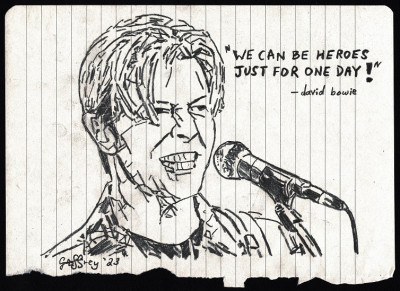 "WE CAN BE HEROES
JUST FOR ONE DAY!"
—david bowie
Geffrey '23